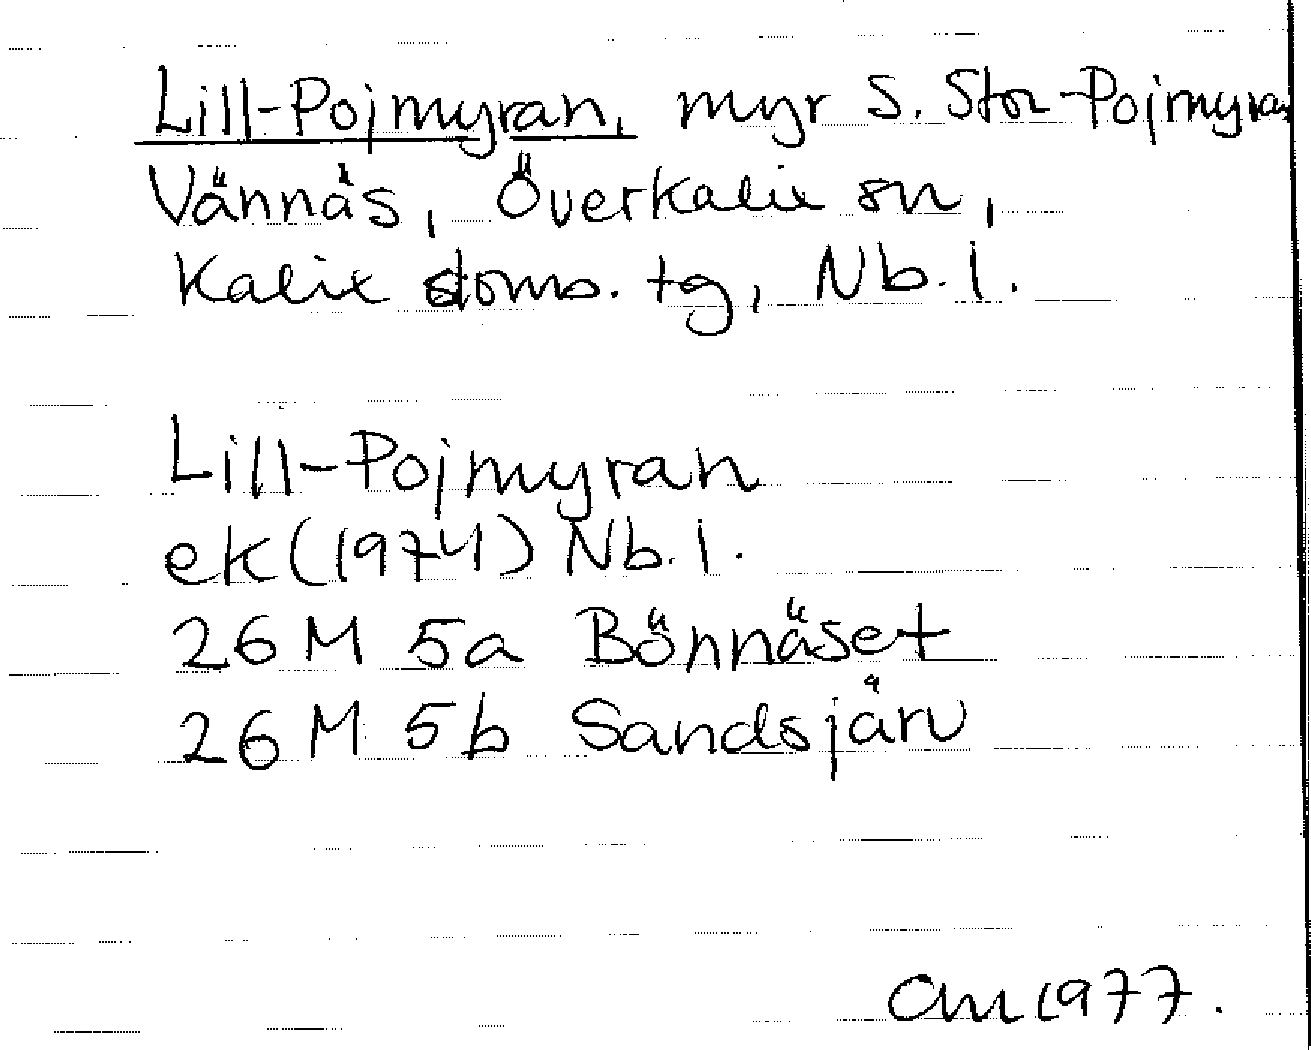 Lill-Pojmyran, myr S. Stor-Pojmyran
Vännäs, Överkalix sn,
Kalix doms. tg, Nb. l.
Lill-Pojmyran
ek (1974) Nb. l.
26 M 5a Bönnäset
26 M 5b Sandsjärv
1977.